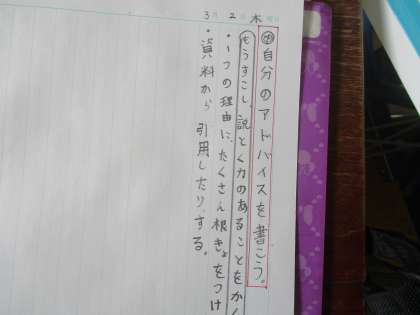 3月2日木曜日
め自分のアドバイスを書こう。
もうすこし、説とく力のあることをかく
・1つの理由に、たくさん根きょをつけ
・資料から引用したり、する。